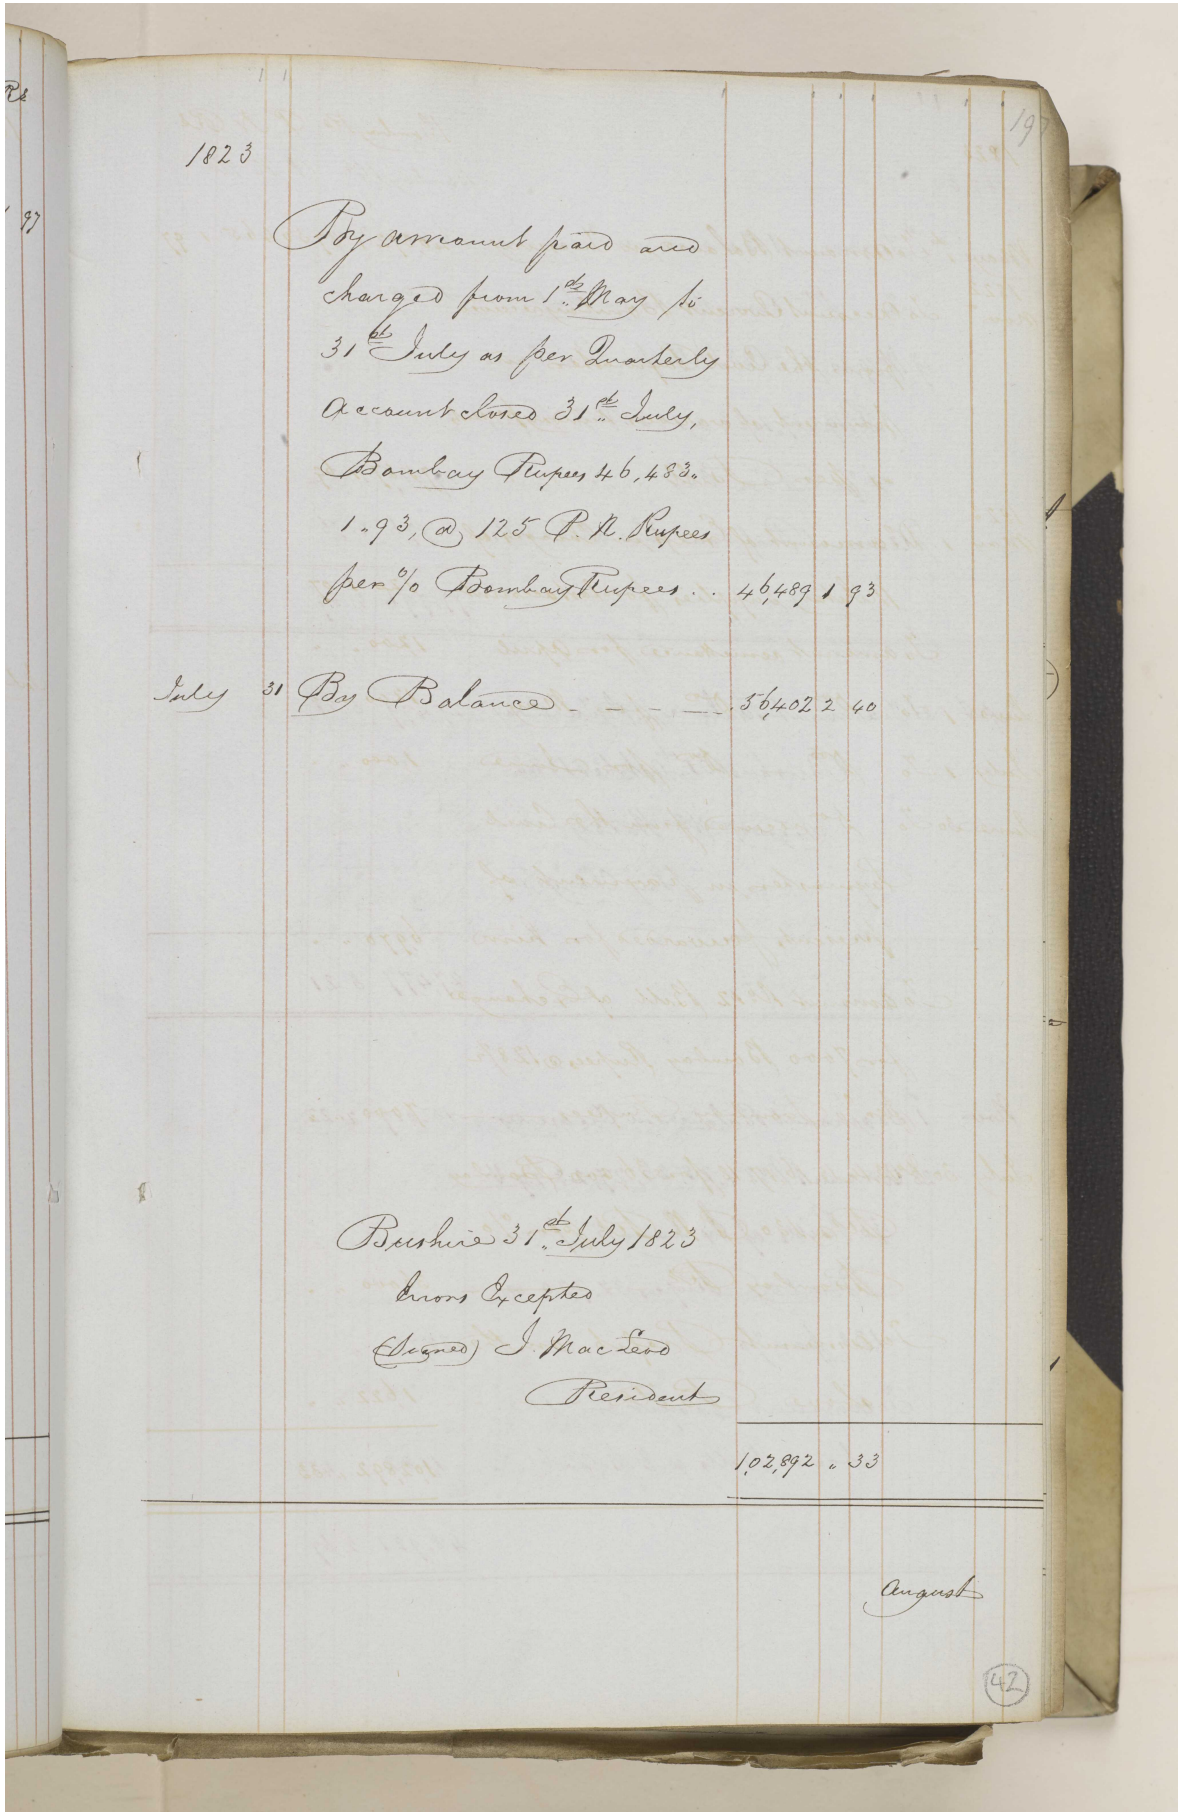 197
1823
By amount paid and
charged from 1st May to
31st July as per Quarterly
Account closed 31st July,
Bombay Rupees 46,483„
1„93, @ 125 P. R. Rupees
per % Bombay Rupees . . 46,489 1 93
July 31 By Balance - - - - 56,402 2 40
Bushire 31st July 1823
Errors Excepted
(Signed) J. MacLeod
Resident
1,02,892 „ 33
August
42